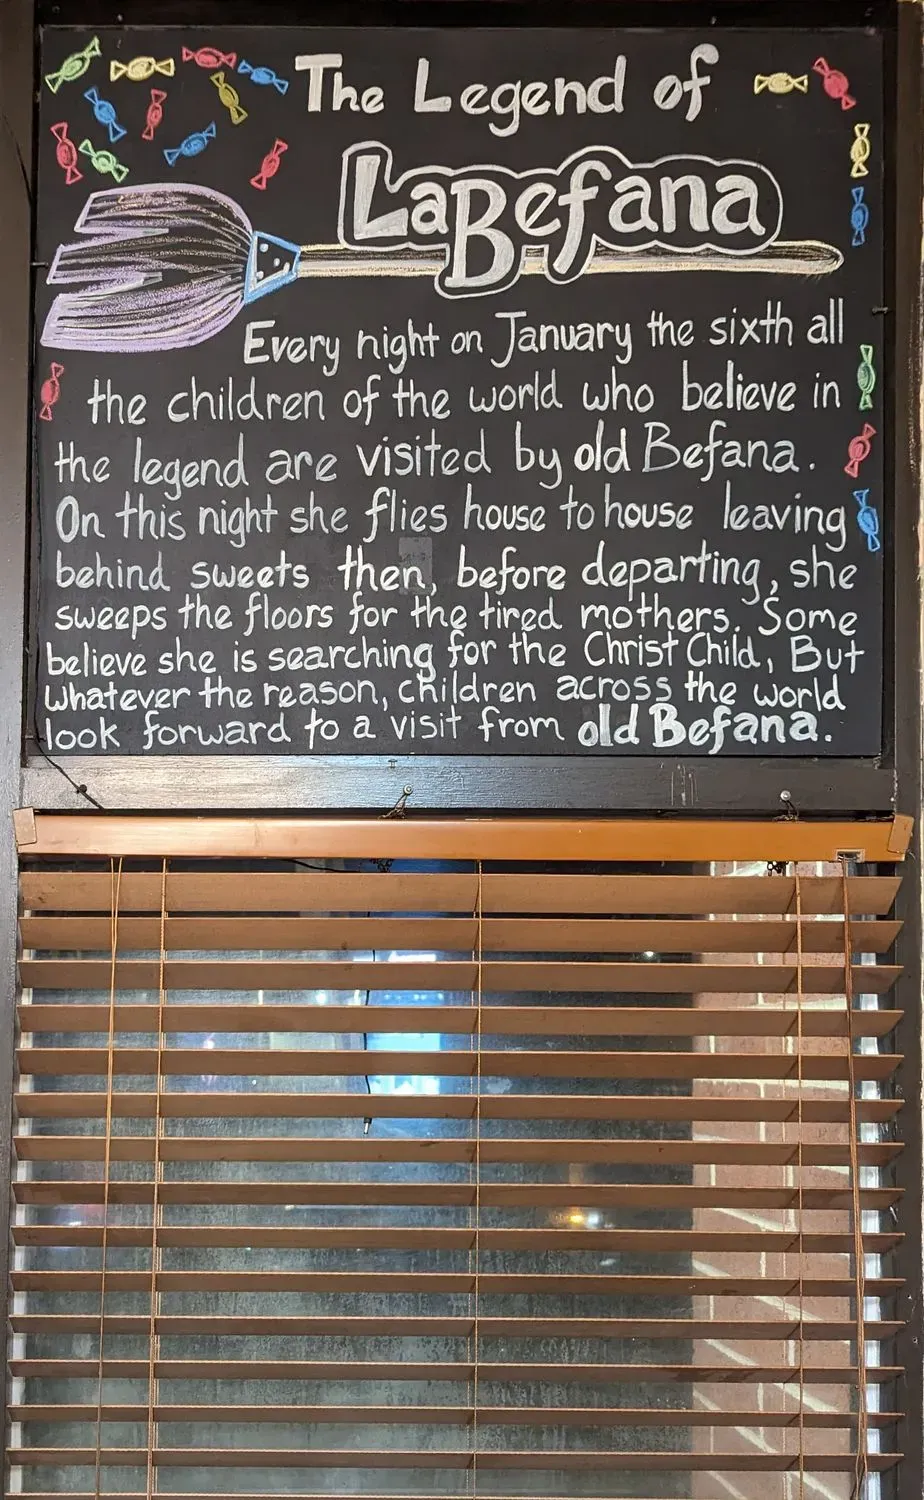 The Legend of
LaBefana
Every night on January the sixth all
the children of the world who believe in
the legend are visited by old Befana.
On this night she flies house to house leaving
behind sweets then, before departing, she
sweeps the floors for the tired mothers. Some
believe she is searching for the Christ Child, But
whatever the reason, children across the world
look forward to a visit from old Befana.